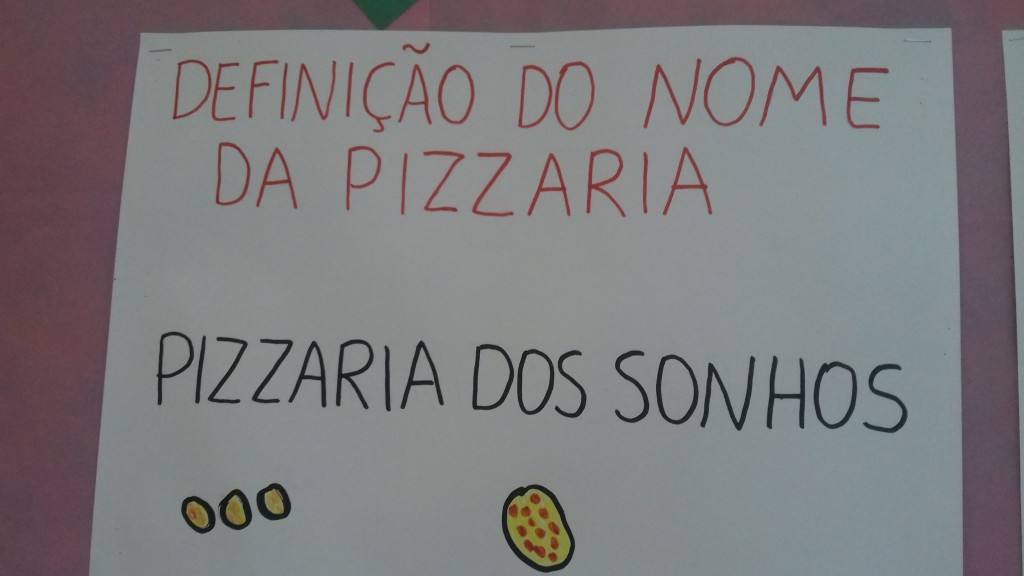 DEFINIÇÃO DO NOME
DA PIZZARIA
PIZZARIA DOS SONHOS